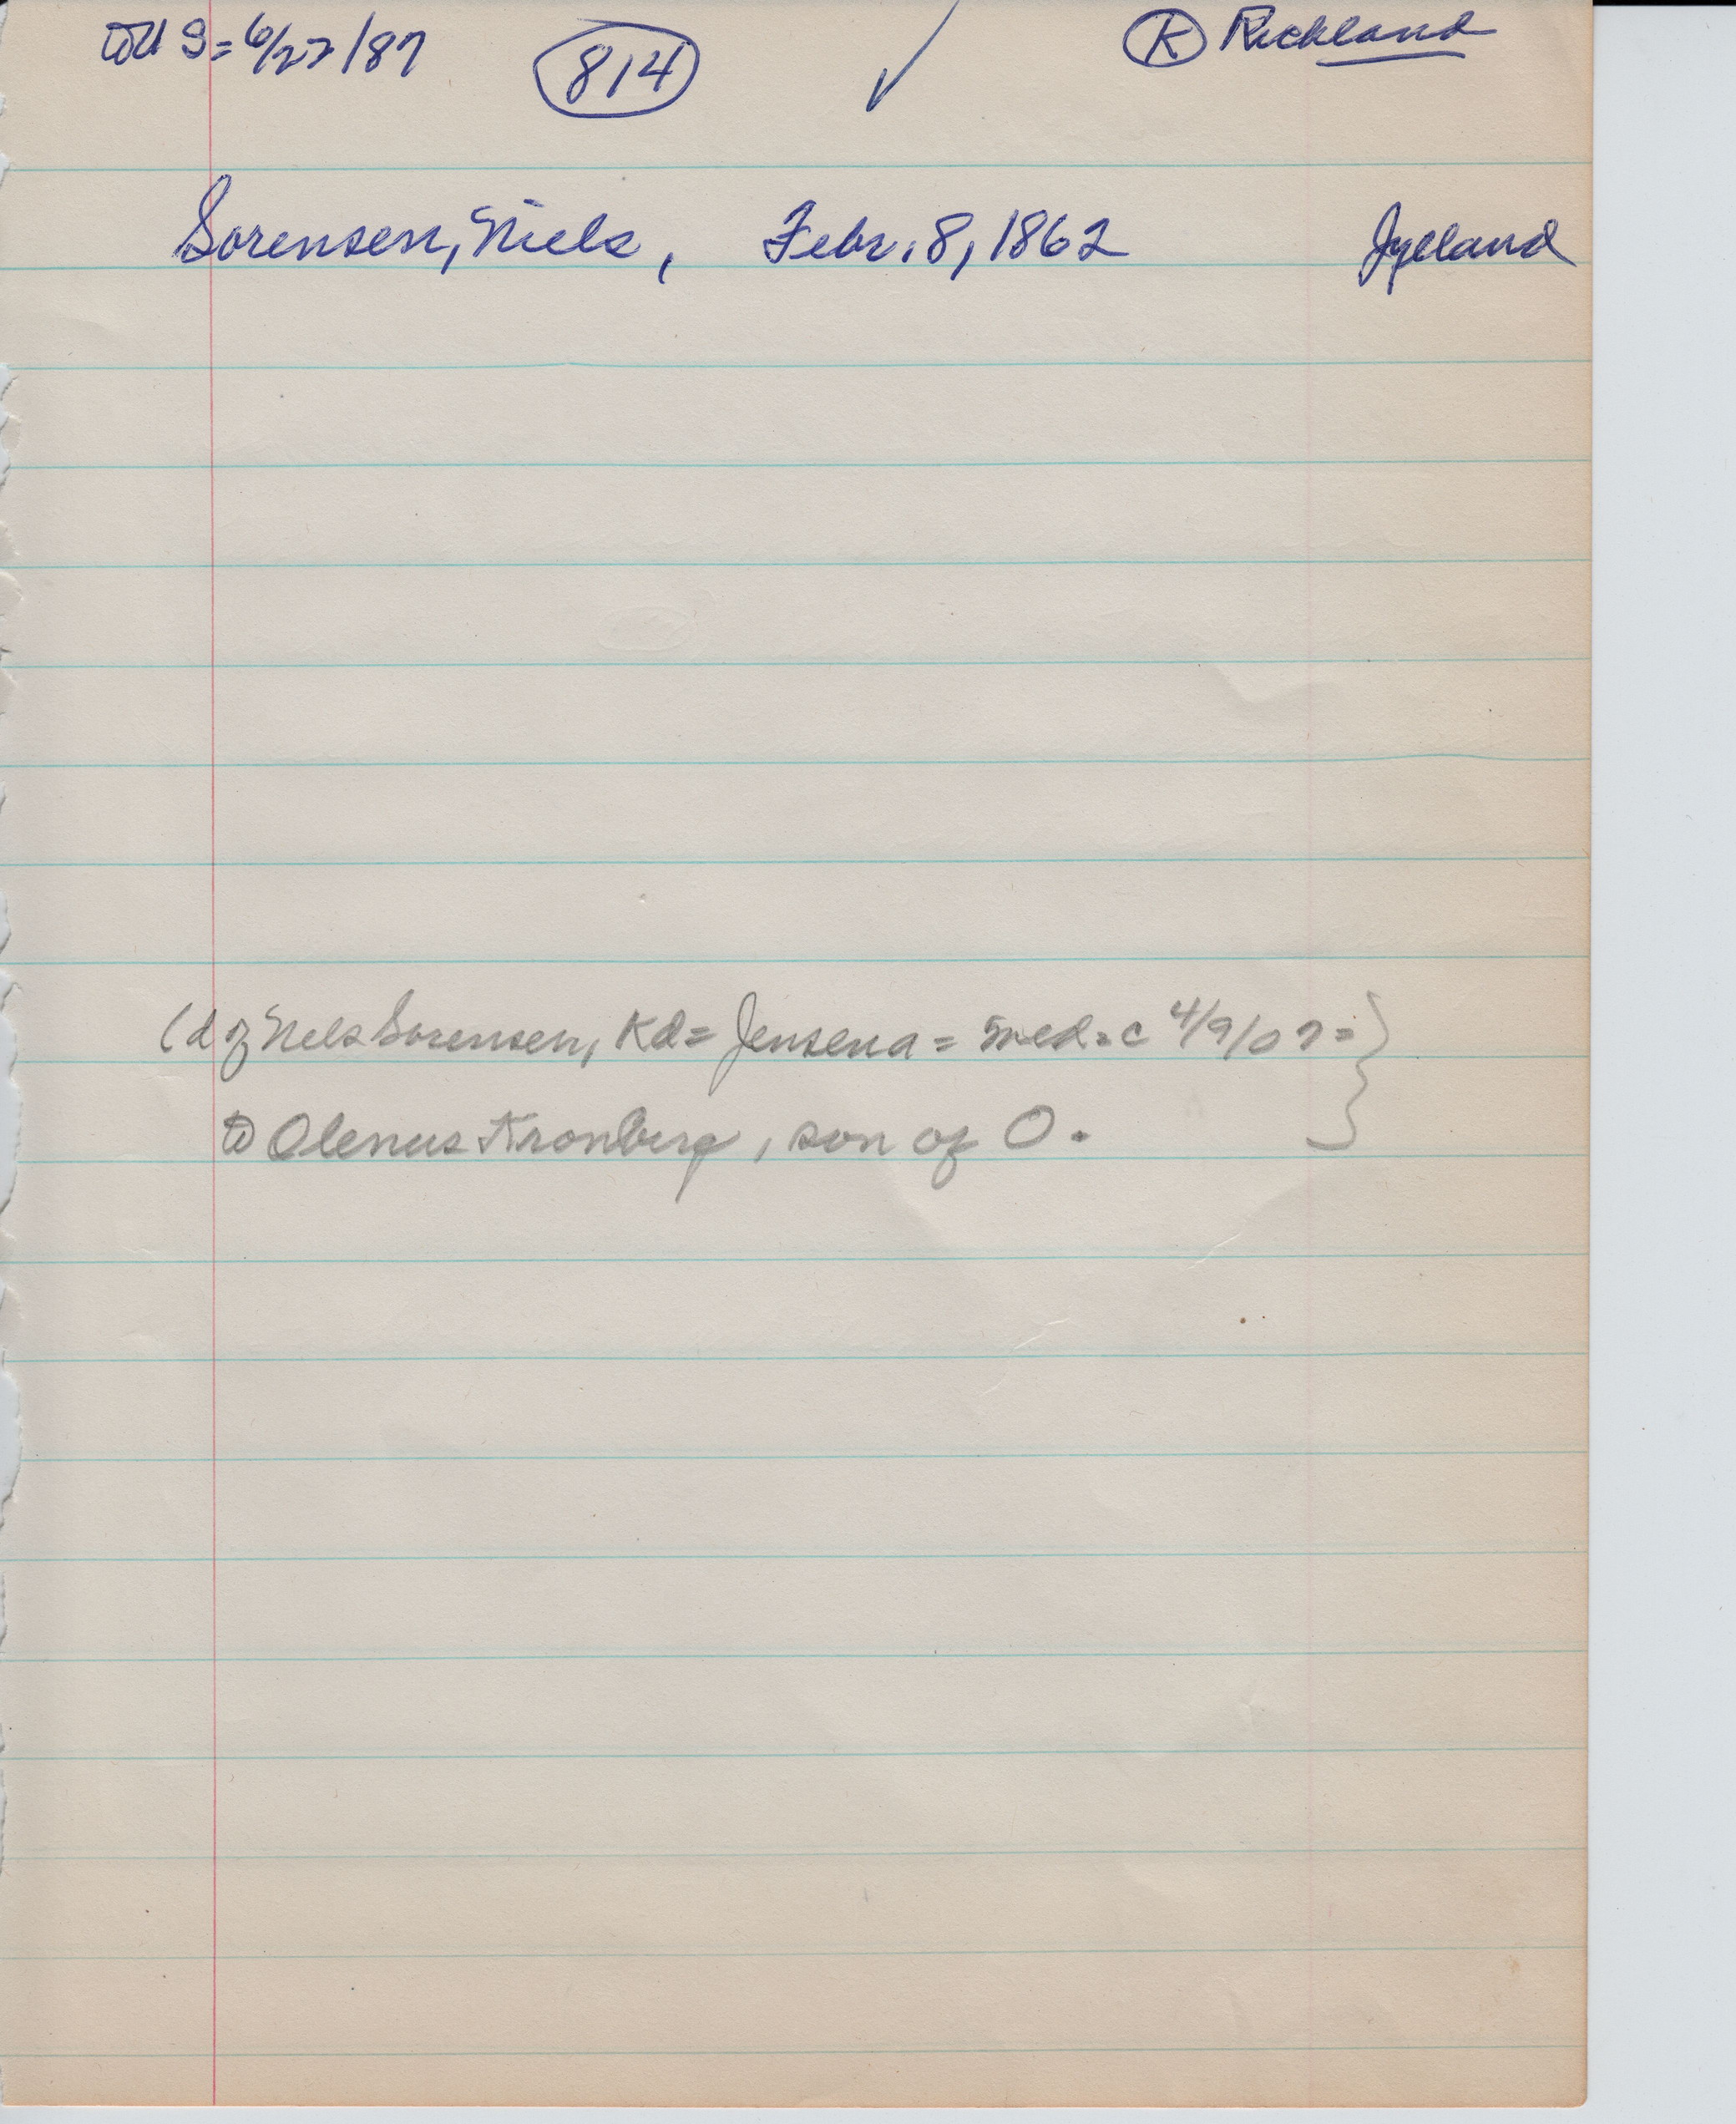 to U S = 6/27/87 814 ✓ K Richland
Sorensen, Niels, Febr. 8, 1862 Jylland
(d of Nels Sorensen, Kd = Jensena = med = c 4/9/07 = }
to Olenus Kronberg, son of O. }